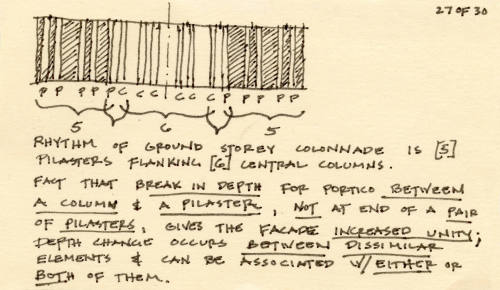 27 OF 30
P P P P P C C C C C C C P P P P P
5 6 5
RHYTHM OF GROUND STOREY COLONNADE IS [5]
PILASTERS FLANKING [6] CENTRAL COLUMNS.
FACT THAT BREAK IN DEPTH FOR PORTICO BETWEEN
A COLUMN & A PILASTER, NOT AT END OF A PAIR
OF PILASTERS, GIVES THE FACADE INCREASED UNITY;
DEPTH CHANGE OCCURS BETWEEN DISSIMILAR
ELEMENTS & CAN BE ASSOCIATED W/ EITHER OR
BOTH OF THEM.